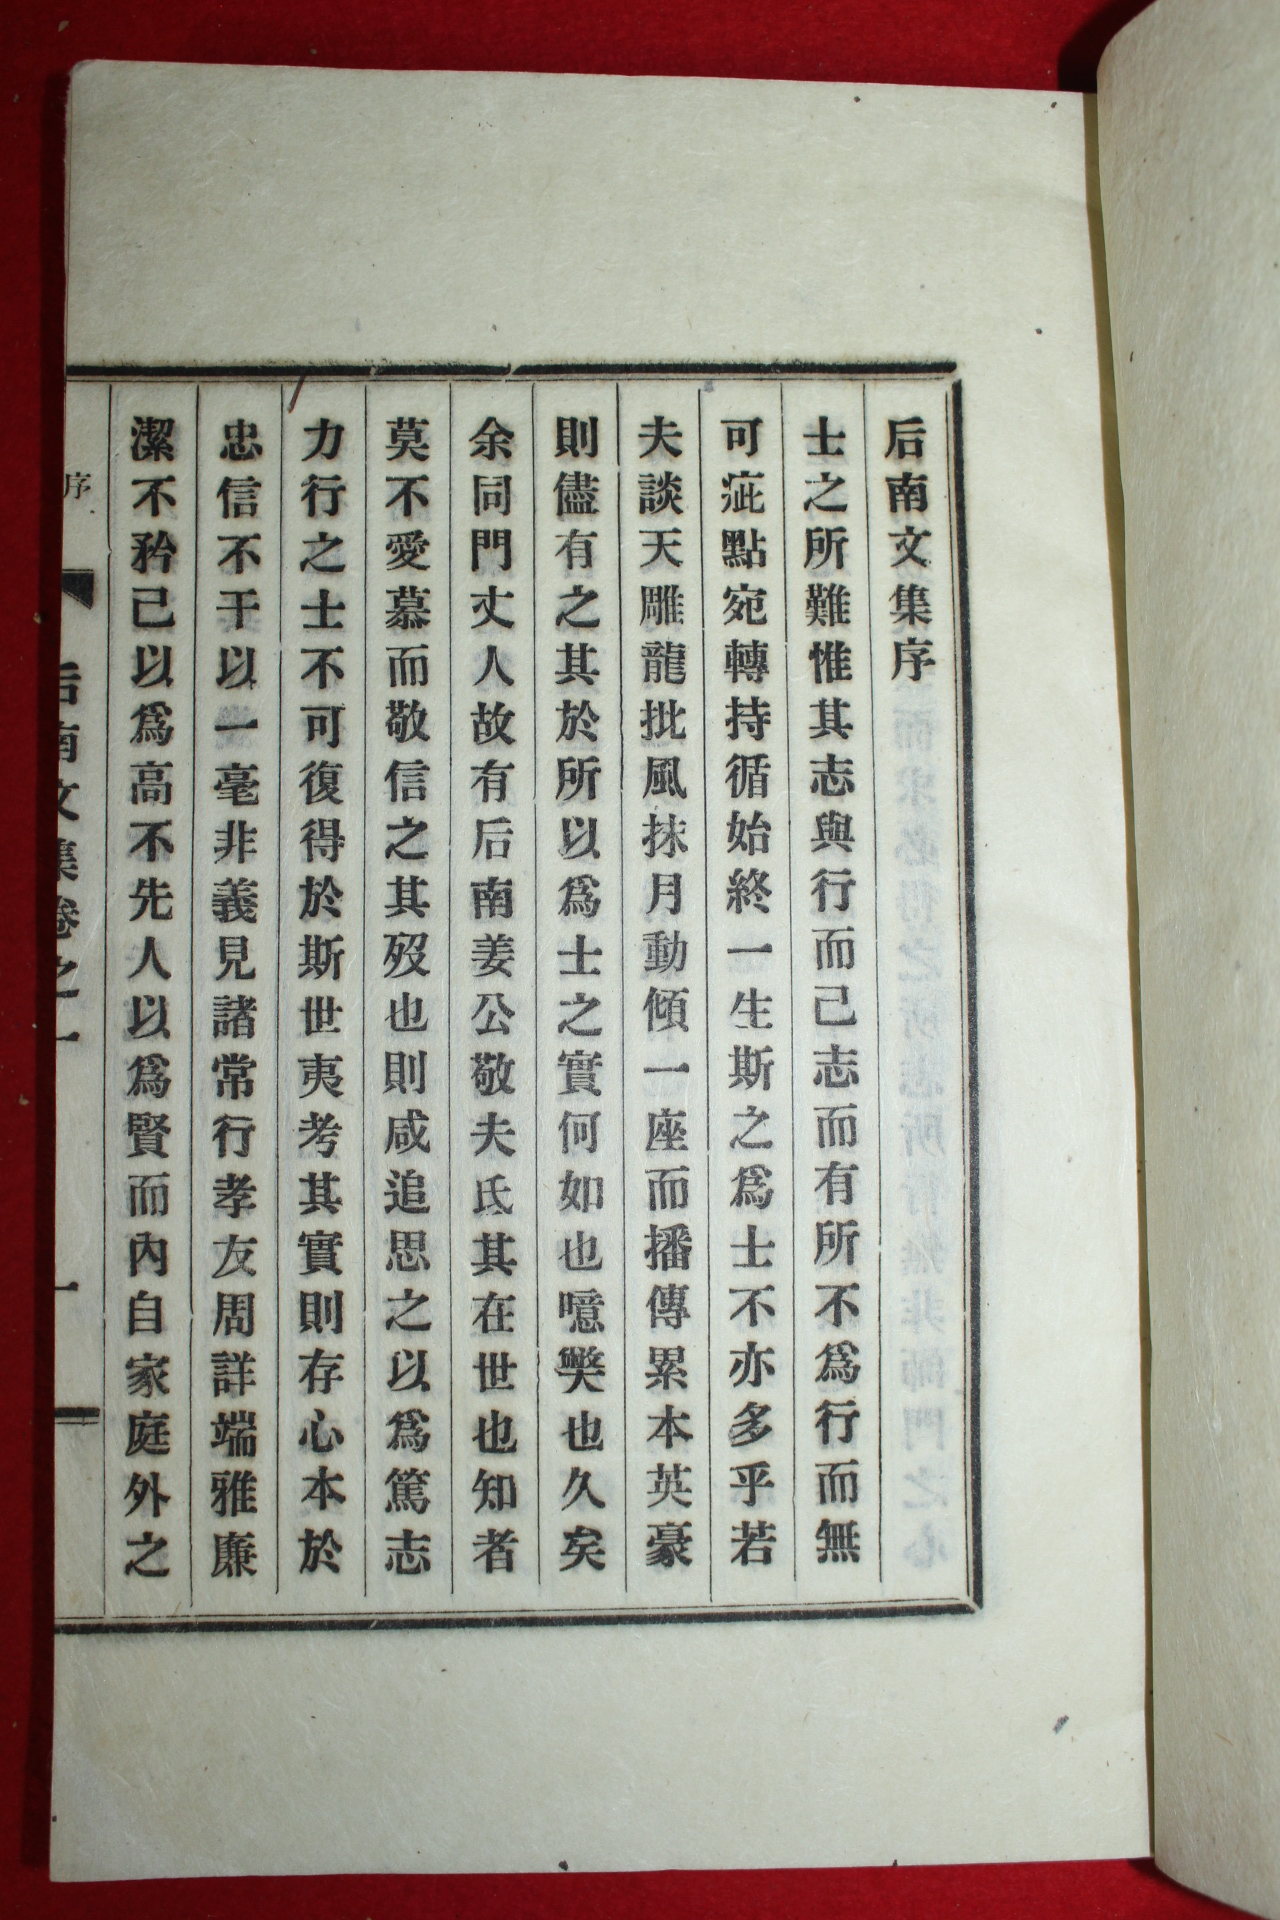 后南文集序
士之所難惟其志與行而已志而有所不爲行而無
可疵點宛轉持循始終一生斯之爲士不亦多乎若
夫談天雕龍批風抹月動傾一座而播傳累本英豪
則儘有之其於所以爲士之實何如也噫獘也久矣
余同門丈人故有后南姜公敬夫氏其在世也知者
莫不愛慕而敬信之其歿也則咸追思之以爲篤志
力行之士不可復得於斯世夷考其實則存心本於
忠信不干以一毫非義見諸常行孝友周詳端雅廉
潔不矜己以爲高不先人以爲賢而內自家庭外之
序
后南文集卷之一
一